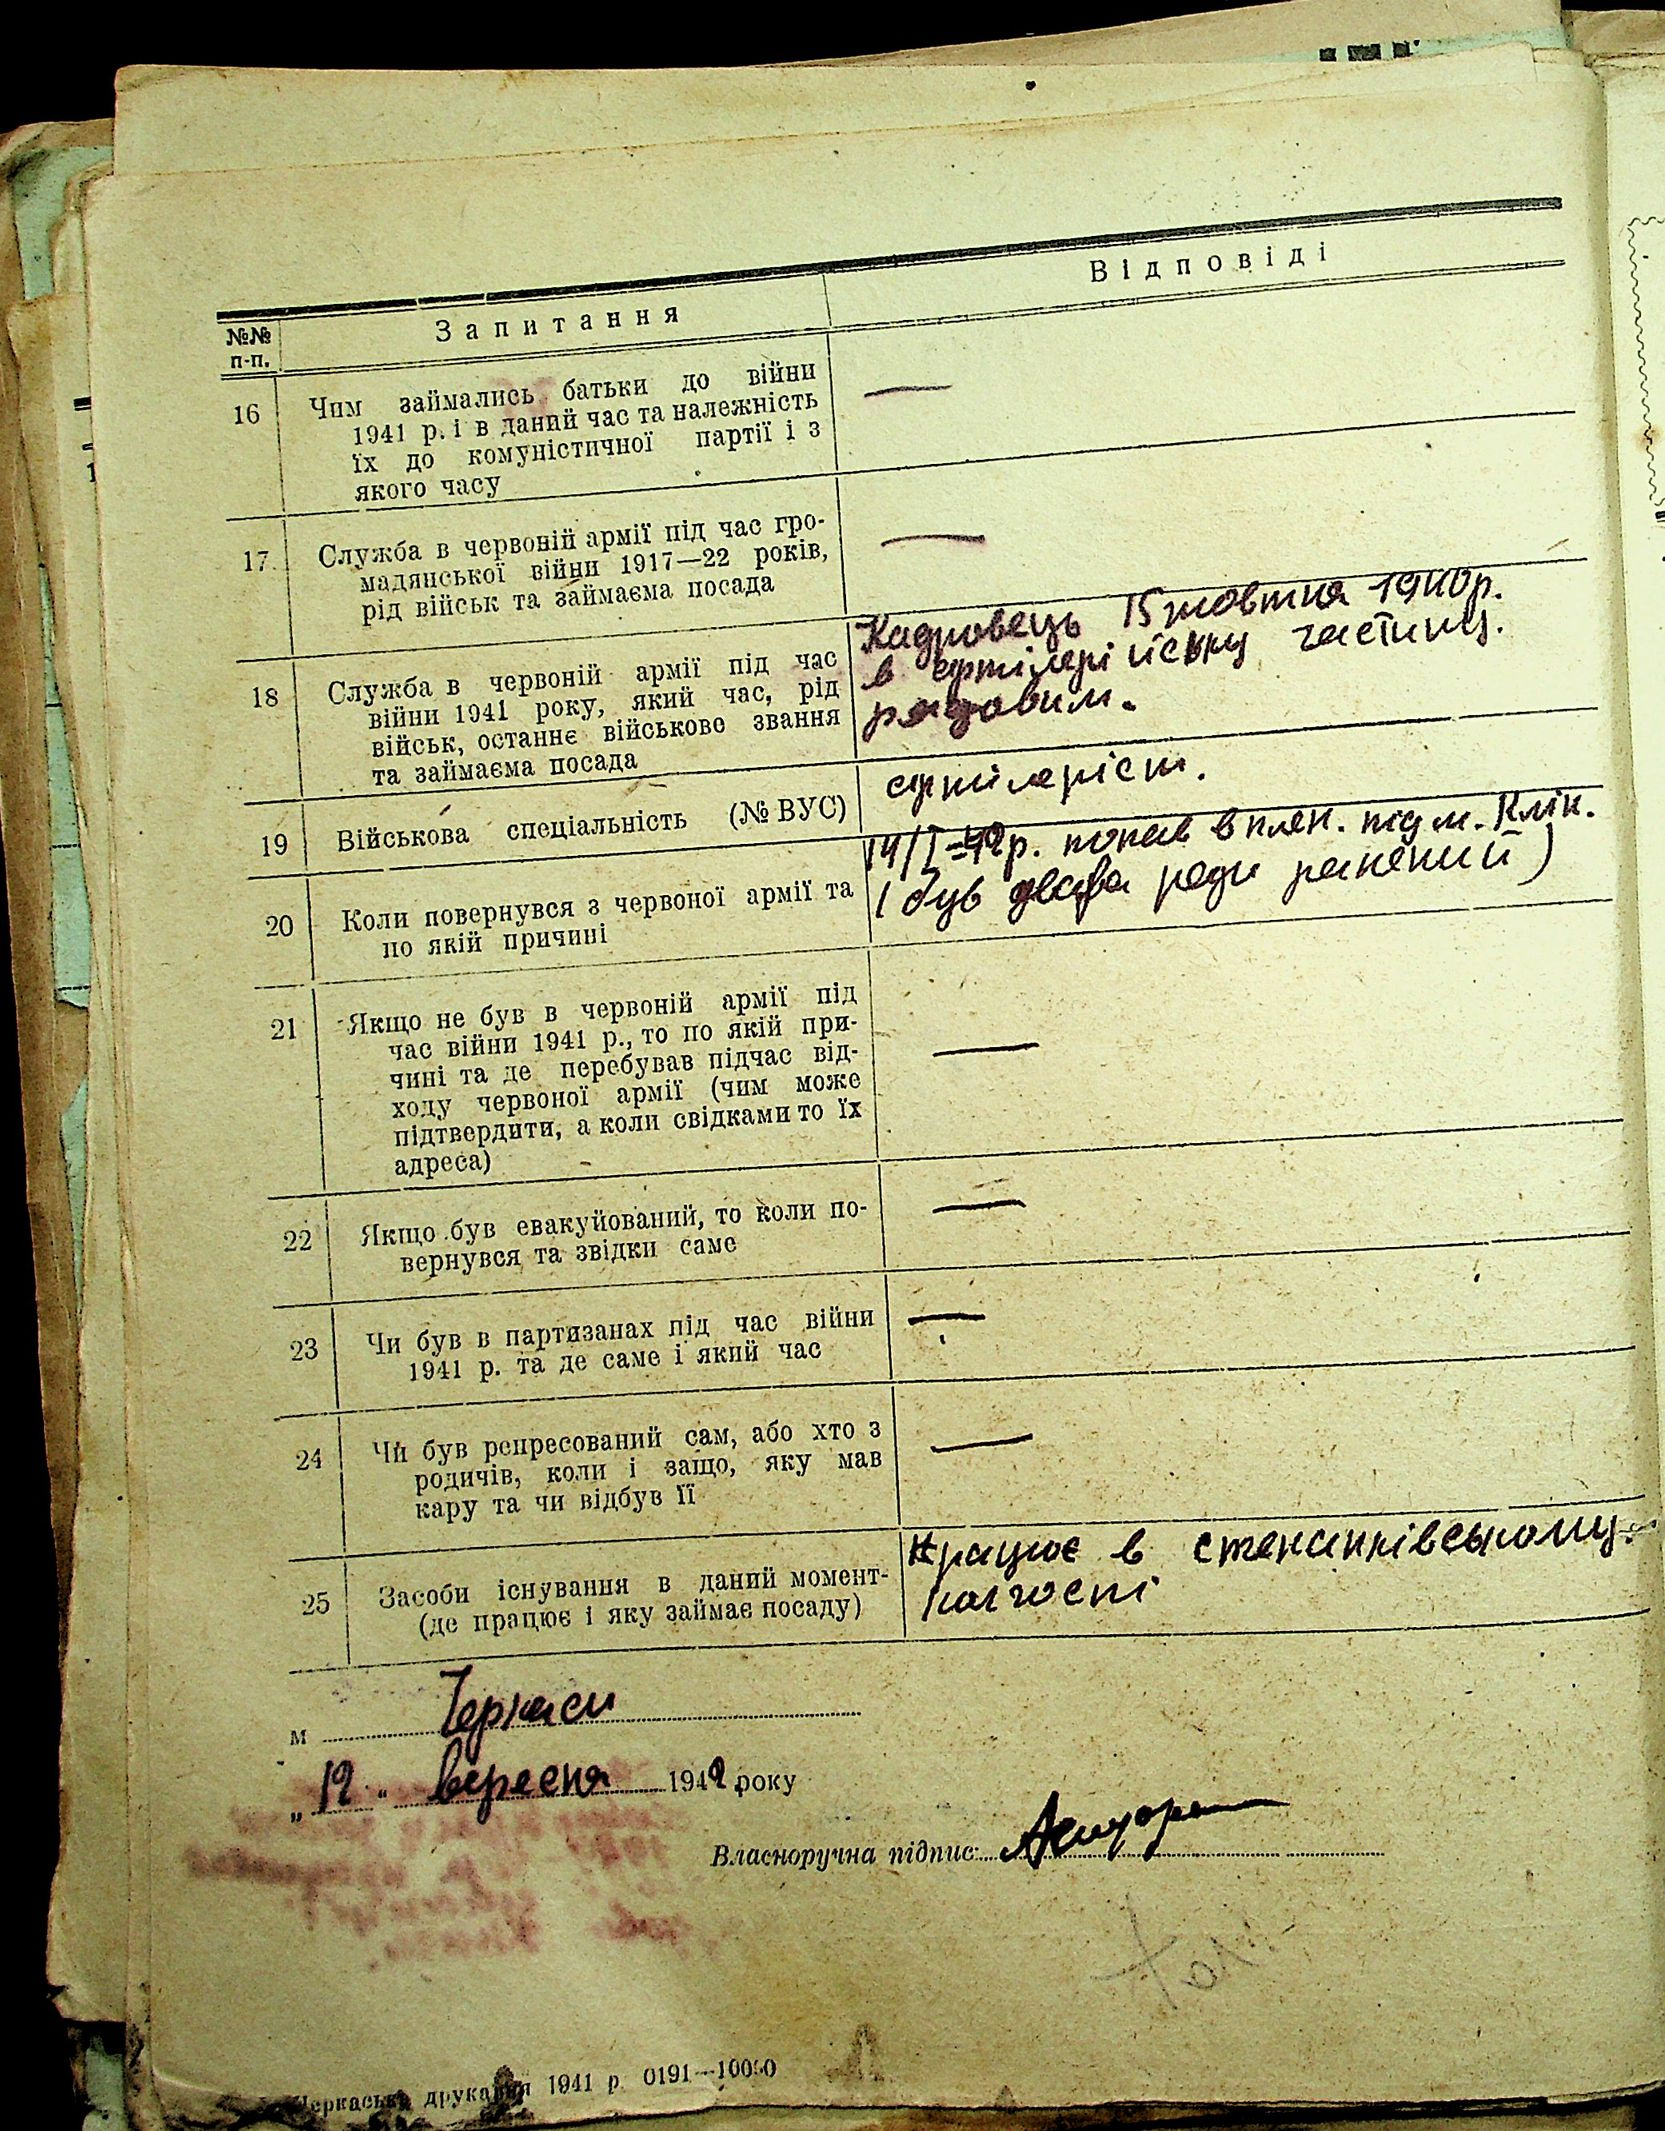 №№ п-п.
Запитання
Відповіді
16
Чим займались батьки до війни
1941 р. і в даний час та належність
їх до комуністичної партії і з
якого часу
—
17
Служба в червоній армії під час гро-
мадянської війни 1917—22 років,
рід військ та займаєма посада
—
18
Служба в червоній армії під час
війни 1941 року, який час, рід
військ, останнє військове звання
та займаєма посада
Кадровець 15 жовтня 1940р.
в артілерійську частину.
рядовим.
19
Військова спеціальність (№ ВУС)
артілеріст.
20
Коли повернувся з червоної армії та
по якій причині
14/I-42р. попав в плен. під м. Клін.
( був два рази ранений )
21
Якщо не був в червоній армії під
час війни 1941 р., то по якій при-
чині та де перебував підчас від-
ходу червоної армії (чим може
підтвердити, а коли свідками то їх
адреса)
—
22
Якщо був евакуйований, то коли по-
вернувся та звідки саме
—
23
Чи був в партизанах під час війни
1941 р. та де саме і який час
—
24
Чи був репресований сам, або хто з
родичів, коли і защо, яку мав
кару та чи відбув її
—
25
Засоби існування в даний момент-
(де працює і яку займає посаду)
працює в степанківському.
колгоспі
м Черкаси
„ 12 " вересня 1942 року
Власноручна підпис:
Черкаська друкарня 1941 р. 0191—10000